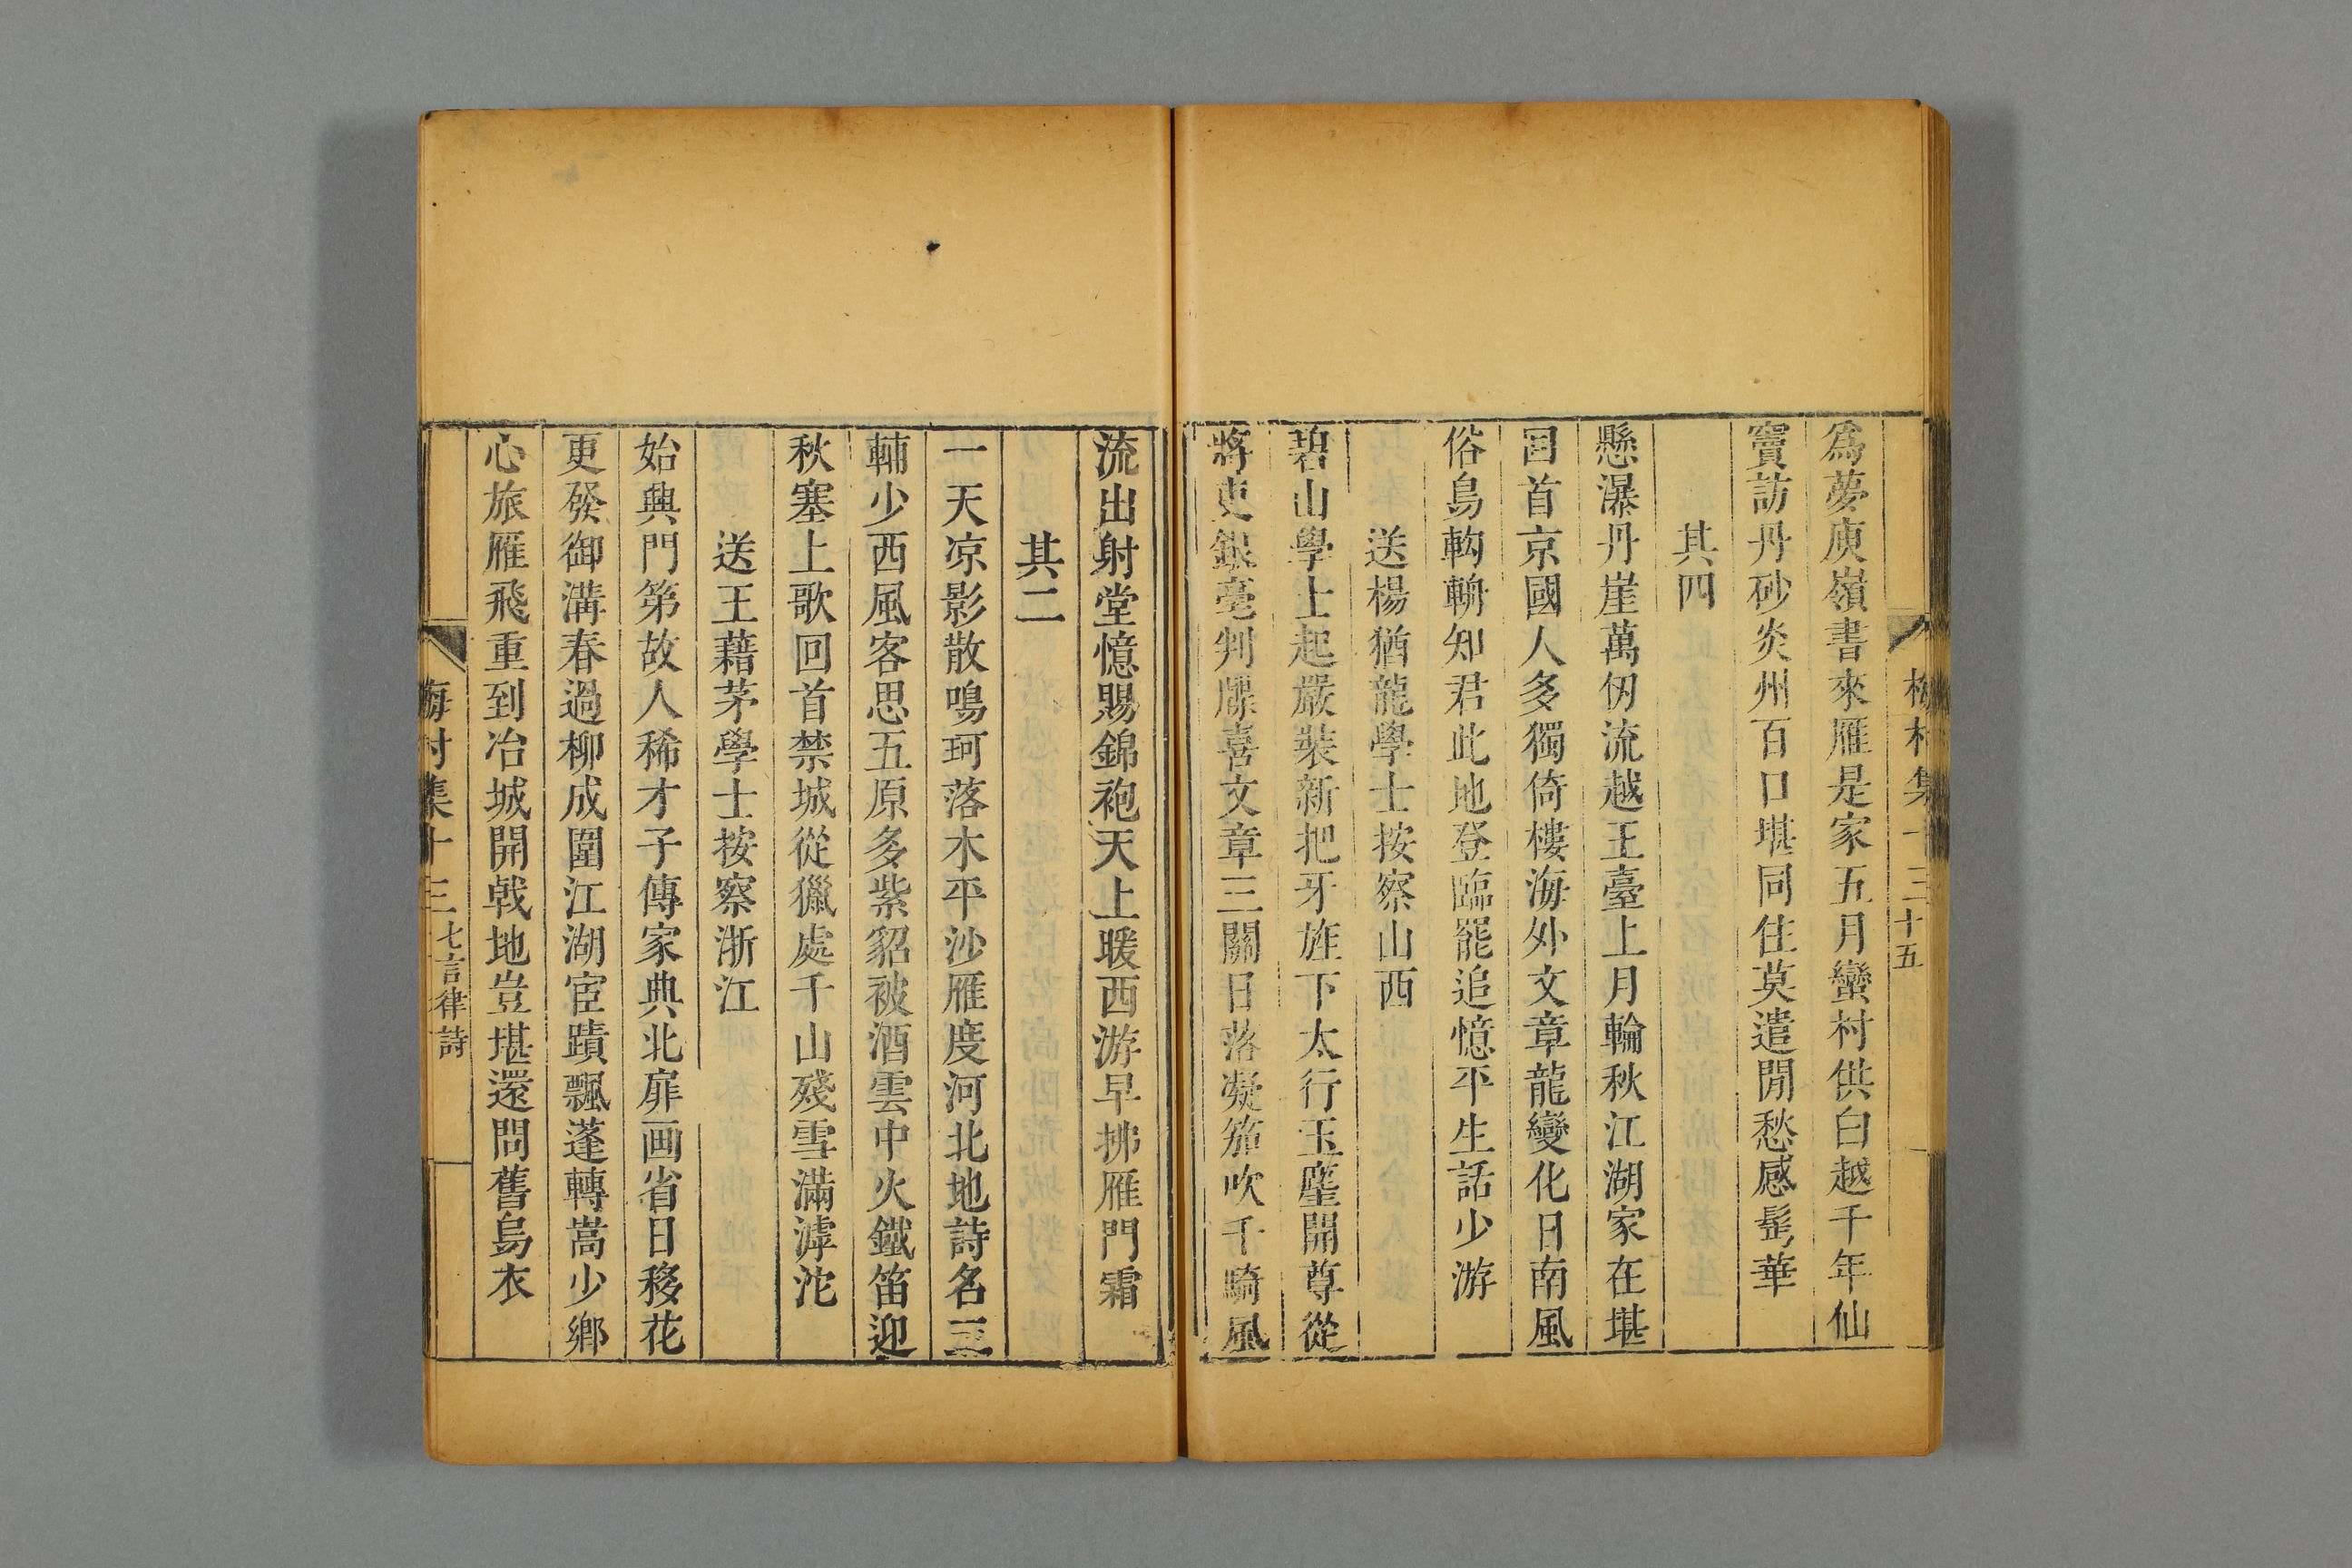 梅村集十三 十五
爲夢庾嶺書來雁是家五月蠻村供白越千年仙
竇訪丹砂炎州百口堪同住莫遣閒愁感髩華
其四
懸瀑丹崖萬仞流越王臺上月輪秋江湖家在堪
囬首京國人多獨倚樓海外文章龍變化日南風
俗鳥軥輈知君此地登臨罷追憶平生話少游
送楊猶龍學士按察山西
碧山學士起嚴裝新把牙旌下太行玉麈開尊從
將吏銀毫判牒喜文章三關日落凝笳吹千騎風
流出射堂憶賜錦袍天上暖西游早拂雁門霜
其二
一天凉影散鳴珂落木平沙雁度河北地詩名三
輔少西風客思五原多紫貂被酒雲中火鐵笛迎
秋塞上歌回首禁城從獵處千山殘雪滿滹沱
送王藉茅學士按察浙江
始興門第故人稀才子傳家典北扉画省日移花
更發御溝春過柳成圍江湖宦蹟飄蓬轉嵩少鄉
心旅雁飛重到冶城開戟地豈堪還問舊烏衣
梅村集十三 七言律詩